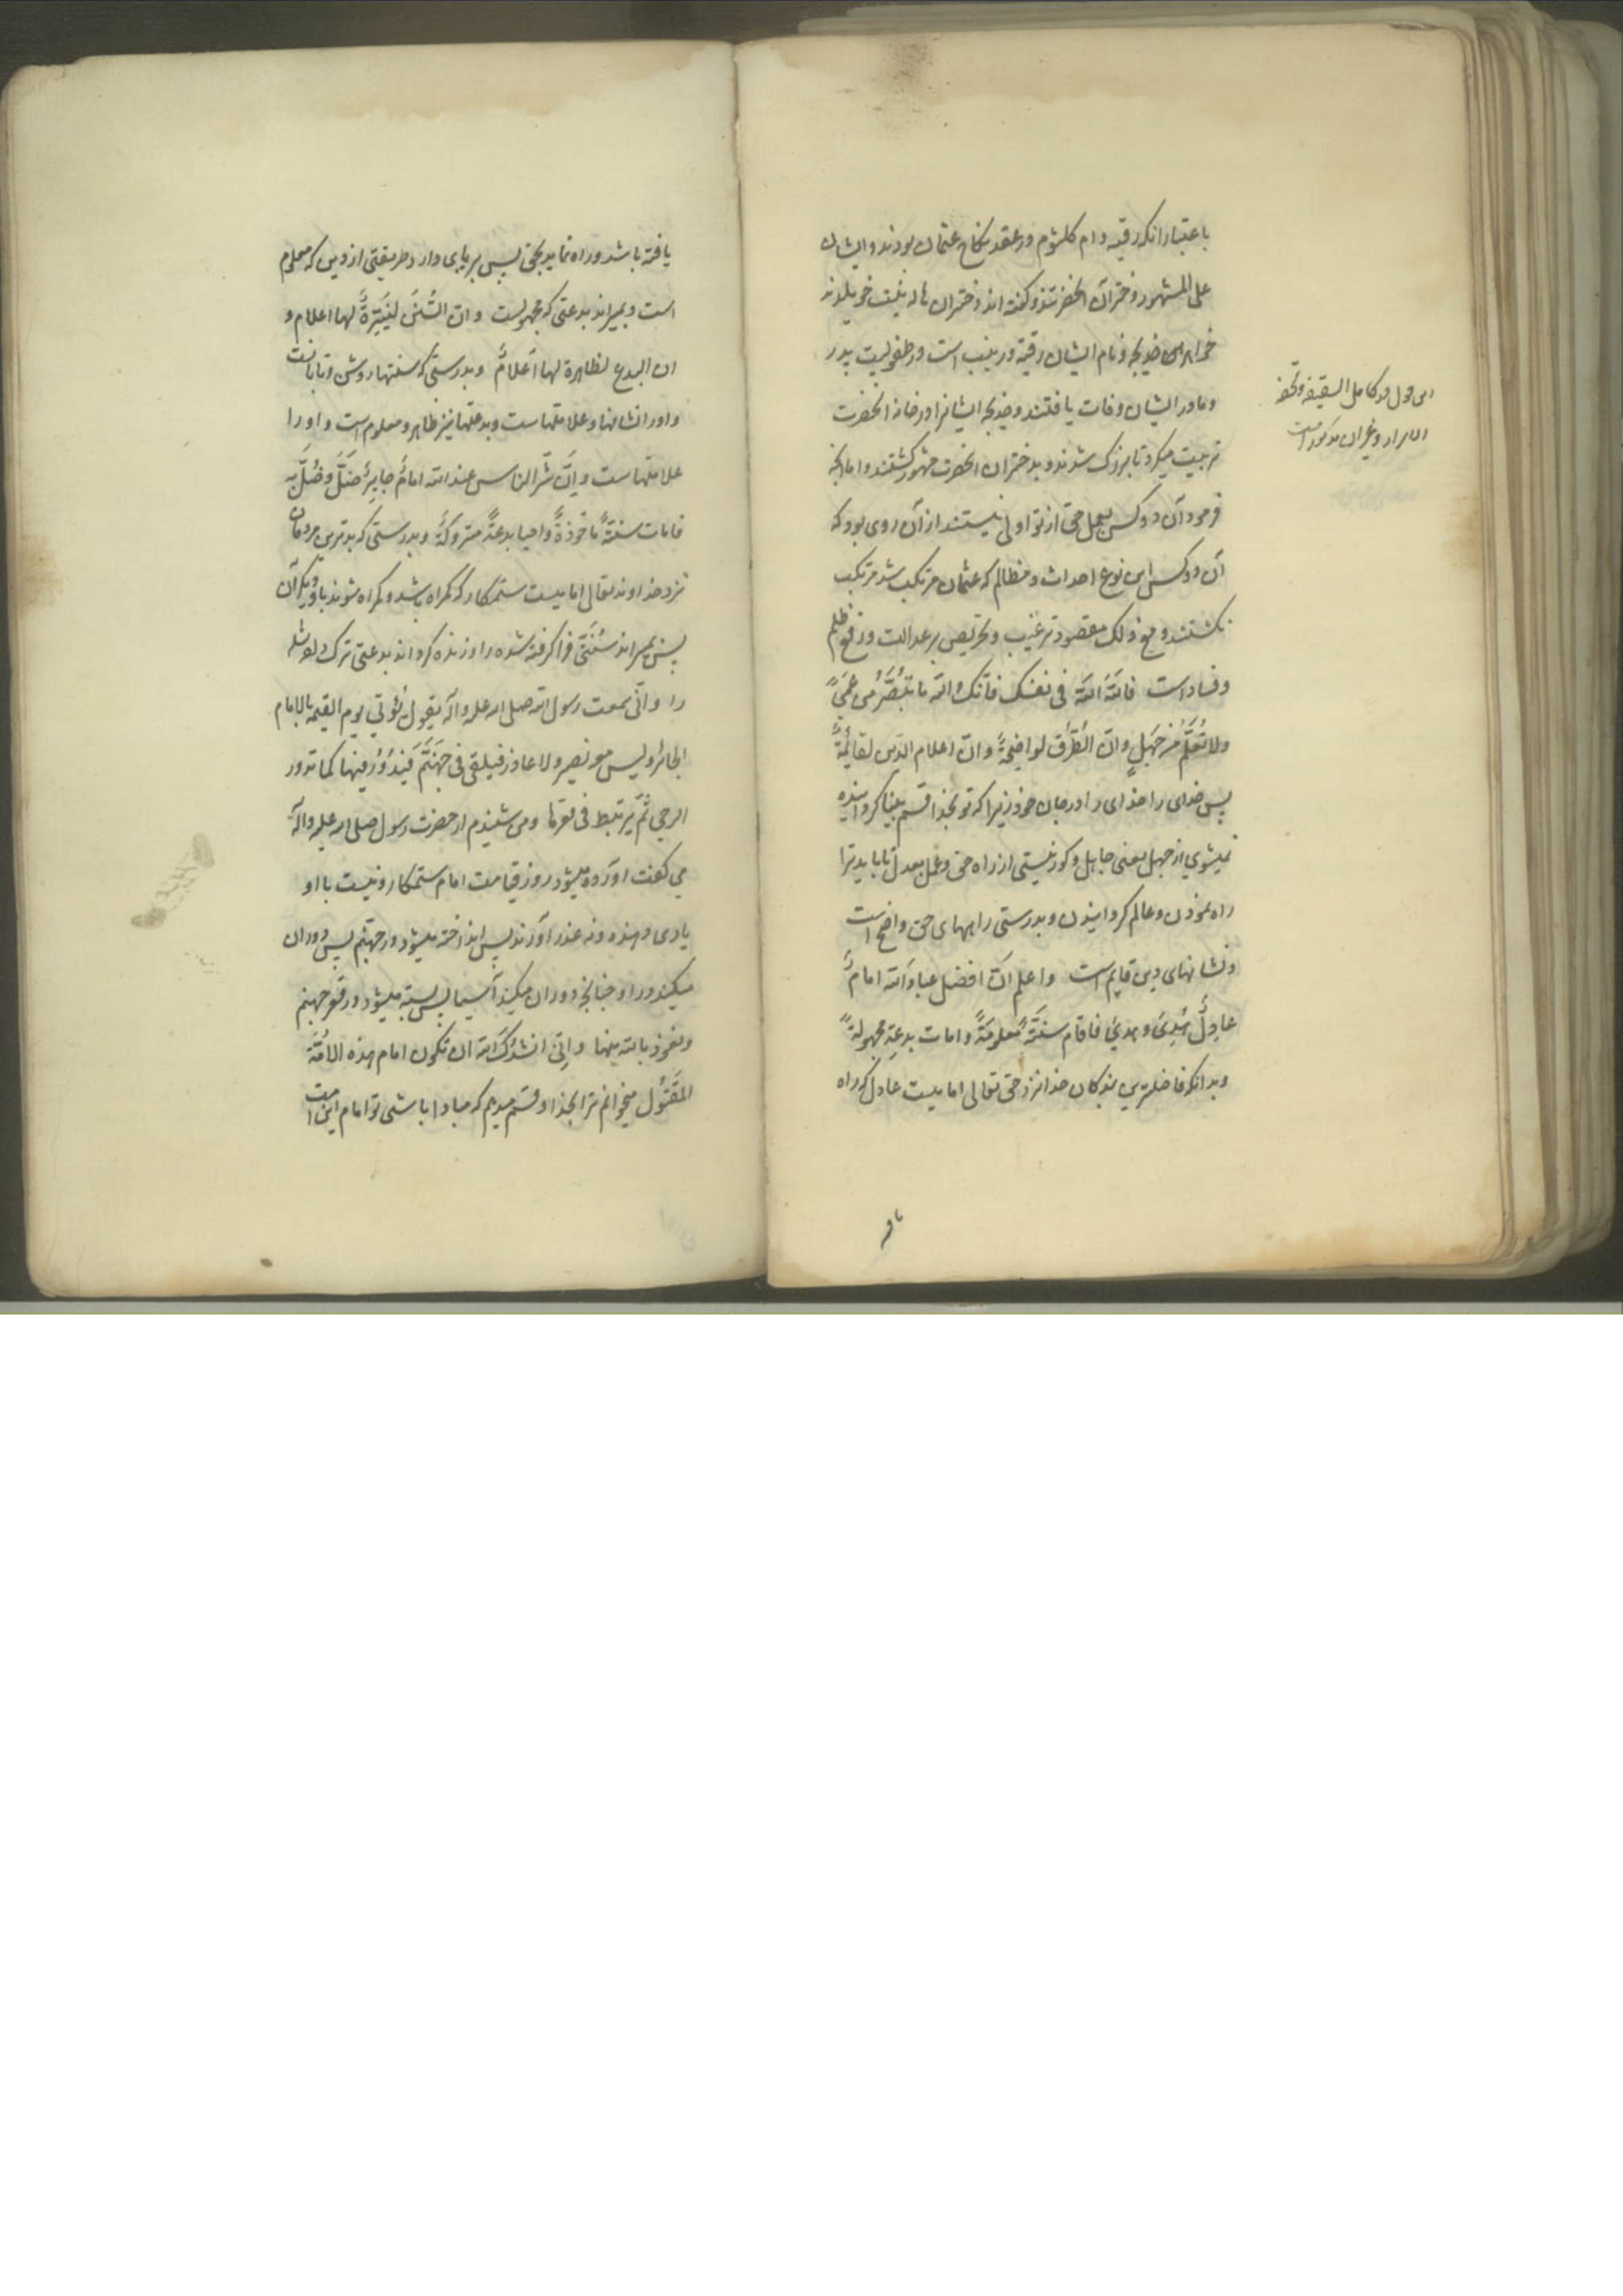 باعتبار آنکه رقیه و ام کلثوم در عقد نکاح عثمان بودند و ایشان
علی المشهور دختران آنحضرتند و گفته‌اند دختران هاله بنت خویلدند
خواهر خدیجه و نام ایشان رقیه و زینب است در طفولیت پدر
و مادر ایشان وفات یافتند و خدیجه ایشانرا در خانه آنحضرت
تربیت میکرد تا بزرک شدند و بدختران آنحضرت مشهور کشتند و اما آنچه
فرمود آن دو کس بعمل حق از تو اولی نیستند از آن روی بود که
آن دو کس این نوع احداث و مظالم که عثمان مرتکب شد مرتکب
نکشتند و مع ذلک مقصود ترغیب و تحریص بر عدالت و رفع ظلم
و فساد است فالله الله فی نفسک فانّک والله ما تُبَصَّرُ من عَمًی
ولا تُعَلَّمُ من جَهلٍ وانّ الطُرُق لواضحةٌ وانّ اعلام الدّین لقائمةٌ
پس خدای را خدای را در جان خود زیرا که تو بخدا قسم بینا کردانیده
نمیشوی از جهل یعنی جاهل و کور نیستی از راه حق و عمل بعدل تا باید ترا
راه نمودن و عالم کردانیدن و بدرستی راههای حق واضح است
و نشانهای دین قایم است واعلم انّ افضل عباد الله امامٌ
عادلٌ هُدِیَ وهدی فاقام سنّةً معلومةً وامات بدعة مجهولةً
و بدانکه فاضلترین بندکان خدا نزد حق تعالی امامیست عادل که راه
این قول در کامل السقیفه و تحفه
الابرار و غیر آن مذکور است
یافته
یافته باشد و راه نماید بحق پس برپای دارد طریقتی از دین که معلوم
است و بمیراند بدعتی که مجهولست وان السُنَنَ لنَیّرةٌ لها اعلام و
ان البدع لظاهرة لها اَعلامٌ و بدرستی که سنتها روشن و تابانست
و او را نشانها و علامتهاست و بدعتها نیز ظاهر و معلوم است و او را
علامتهاست وانّ شرّ الناس عند الله امامٌ جایرٌ ضَلَّ وضُلَّ به
فامات سنّةً ماخوذةً واحیا بدعةً متروکةً و بدرستی که بدترین مردمان
نزد خداوند تعالی امامیست ستمکار که کمراه باشد و کمراه شوند باو دیکران
پس بمیراند سُنّتی فرا کرفته شده را و زنده کرداند بدعتی ترک داده شده
را وانّی سمعت رسول الله صلی الله علیه وآله یقول یُؤتی یوم القیمة بالامام
الجائر ولیس معه نصیر ولا عاذر فیلقی فی جهنّم فیَدُورُ فیها کما تدور
الرحی ثُمّ یرتبط فی قعرها و من شنیدم از حضرت رسول صلی الله علیه وآله
می کفت آورده میشود روز قیامت امام ستمکار و نیست با او
یاری دهنده و نه عذر آورنده پس انداخته میشود در جهنّم پس دوران
میکند در او چنانچه دوران میکند آسیا پس بسته میشود در قعر جهنم
و نعوذ بالله منها وانّی انشدک الله ان تکون امام هذه الامّة
المَقتُول میخوانم ترا بخدا و قسم میدهم که مبادا باشی تو امام این امت